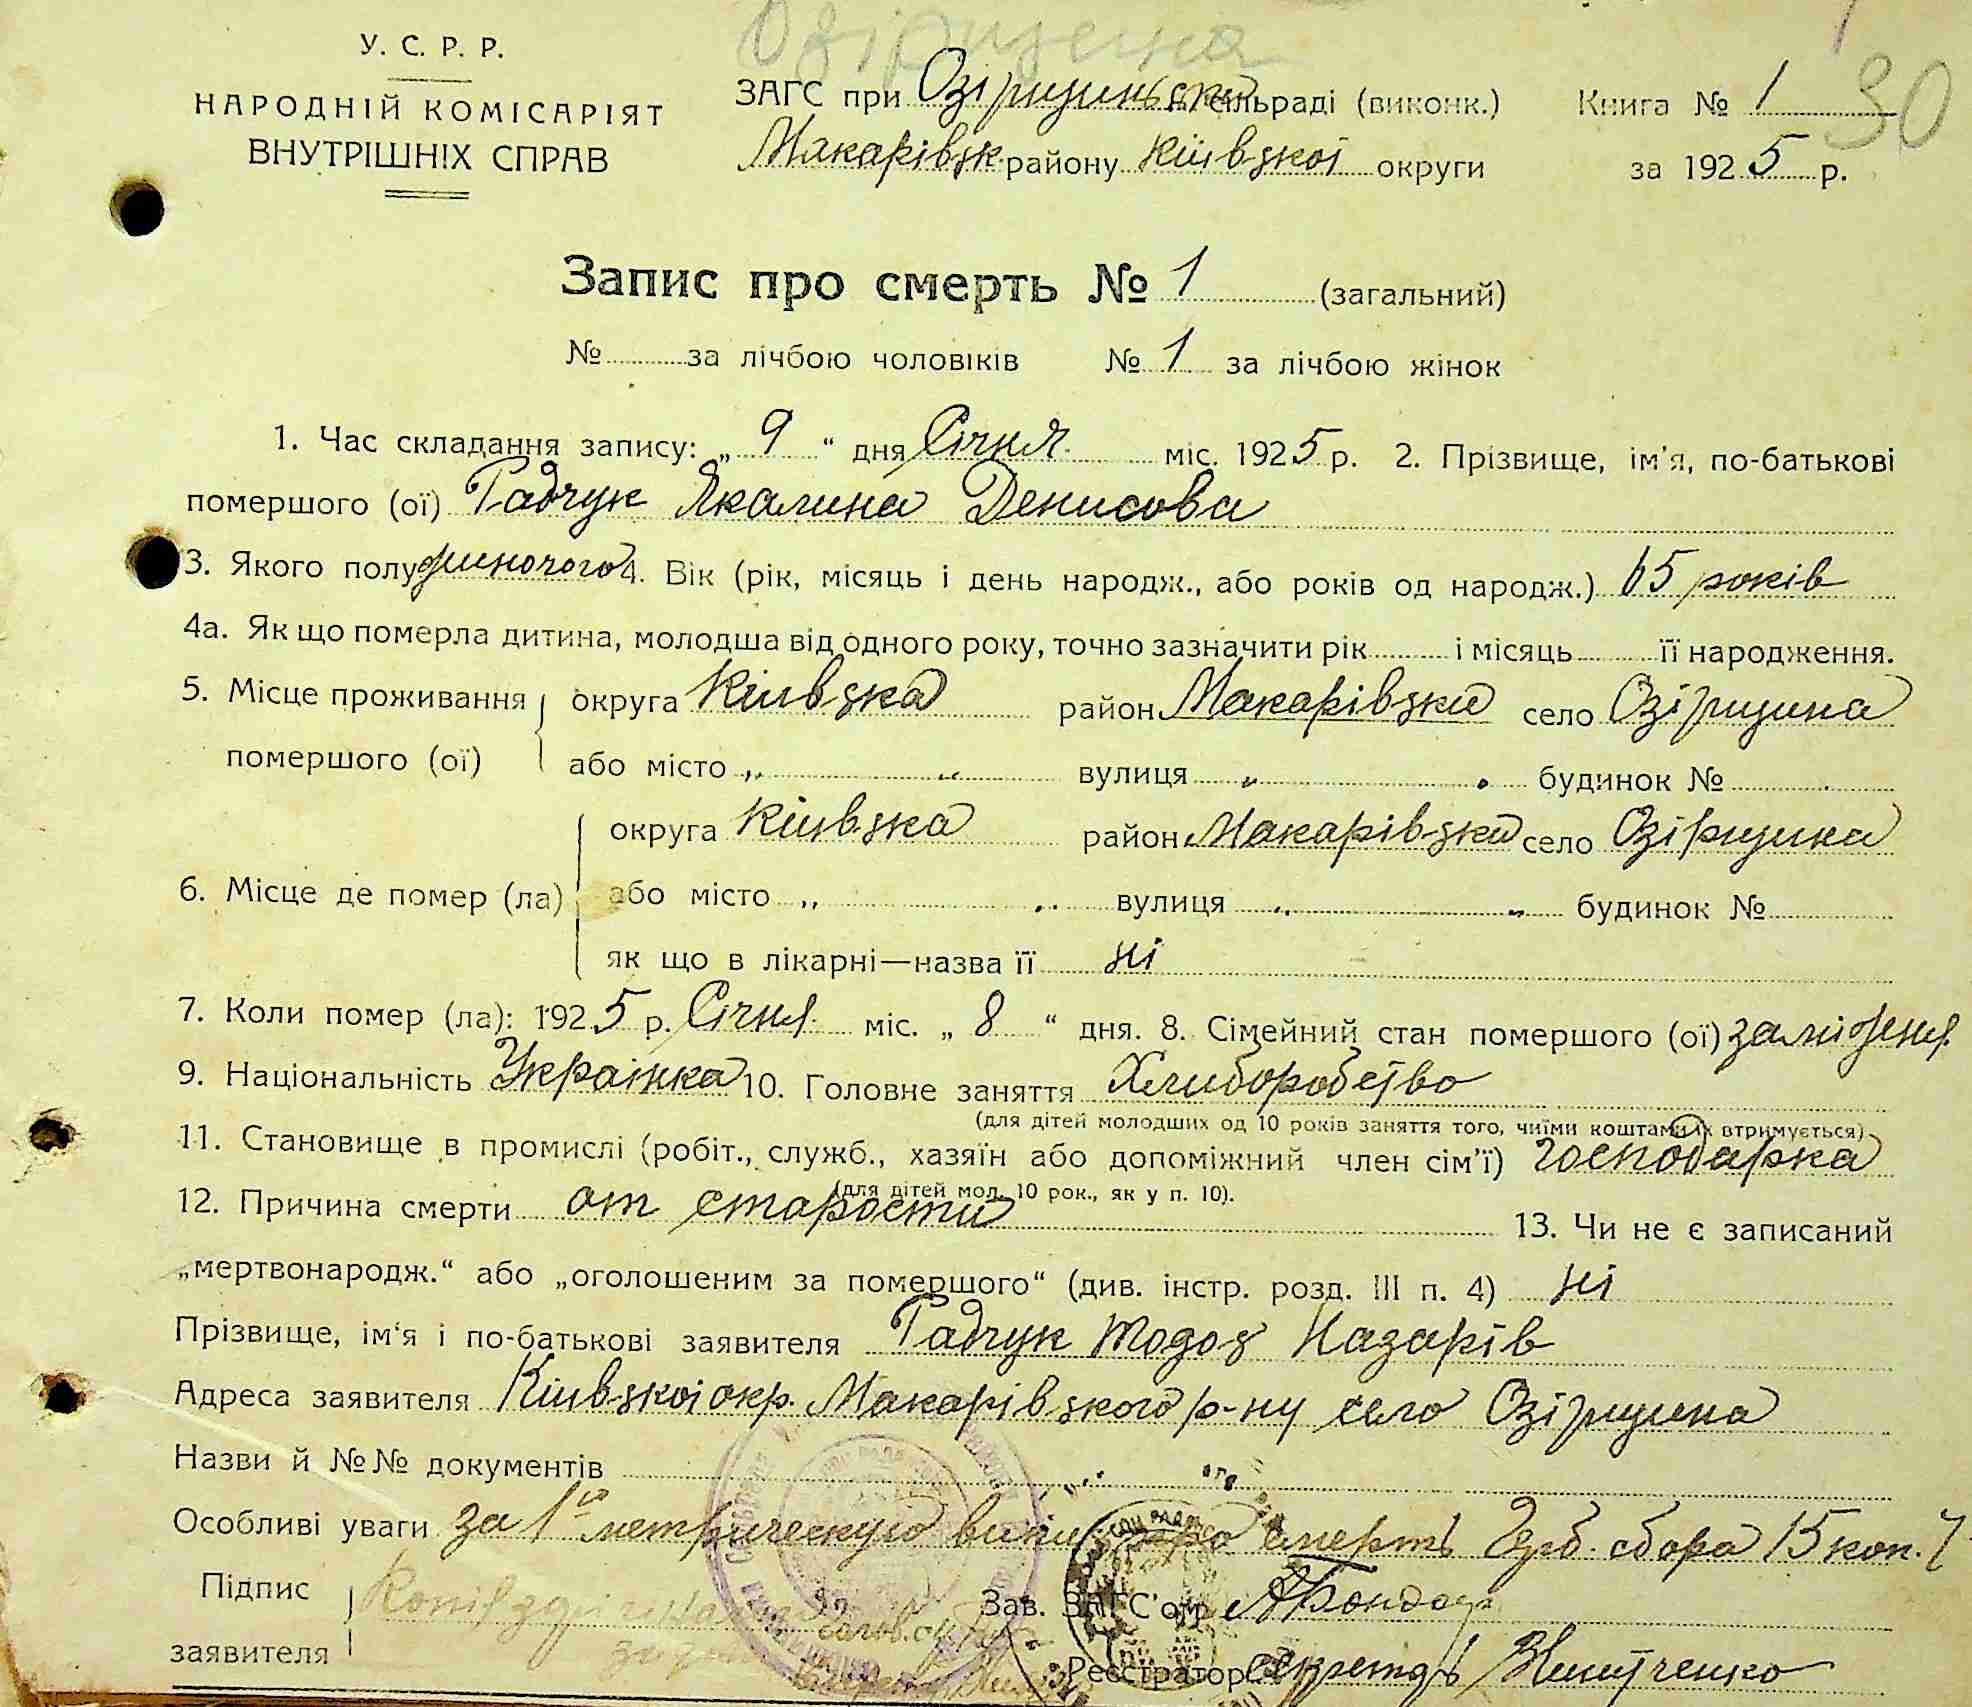 Озірщина
У. С. Р. Р.
НАРОДНІЙ КОМІСАРІЯТ
ВНУТРІШНІХ СПРАВ
ЗАГС при Озірщинській сільраді (виконк.)
Макарівськ району Київської округи
Книга № 1
30
за 1925 р.
Запис про смерть № 1 (загальний)
№ за лічбою чоловіків № 1 за лічбою жінок
1. Час складання запису: „ 9 “ дня Січня міс. 1925 р. 2. Прізвище, ім'я, по-батькові
помершого (ої) Гадчук Якалина Денисова
3. Якого полу жиночого 4. Вік (рік, місяць і день народж., або років од народж.) 65 років
4а. Як що померла дитина, молодша від одного року, точно зазначити рік і місяць її народження.
5. Місце проживання округа Київська район Макарівський село Озірщина
помершого (ої) або місто „ „ вулиця „ „ будинок №
округа Київська район Макарівський село Озірщина
6. Місце де помер (ла) або місто „ „ вулиця „ „ будинок №
як що в лікарні—назва її ні
7. Коли помер (ла): 1925 р. Січня міс. „ 8 “ дня. 8. Сімейний стан помершого (ої) заміжня
9. Національність Українка 10. Головне заняття Хлиборобство
(для дітей молодших од 10 років заняття того, чиїми коштами їх втримується)
11. Становище в промислі (робіт., служб., хазяїн або допоміжний член сім'ї) господарка
(для дітей мол. 10 рок., як у п. 10).
12. Причина смерти от старости 13. Чи не є записаний
„мертвонародж.“ або „оголошеним за помершого“ (див. інстр. розд. III п. 4) ні
Прізвище, ім'я і по-батькові заявителя Гадчук Тодос Назарів
Адреса заявителя Київської окр. Макарівського р-ну село Озірщина
Назви й №№ документів
Особливі уваги за 1ю метрическую смерть Герб. сбора 15 коп.
Підпис
заявителя
Зав. ЗАГС'ом АБондар
Реєстратор Секретарь